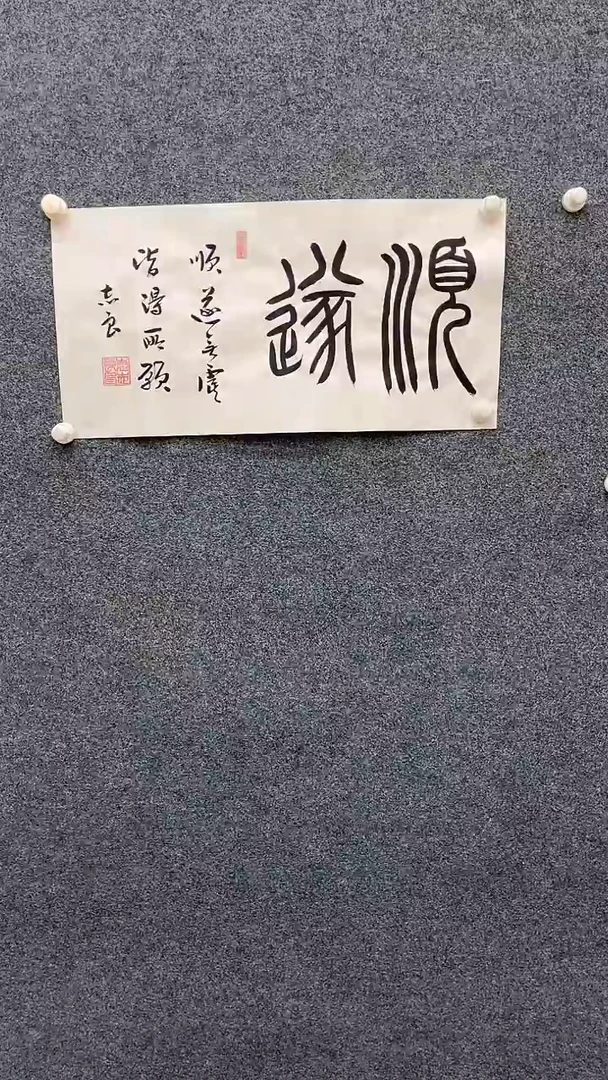 順遂
順遂無虞
皆得所願
志良